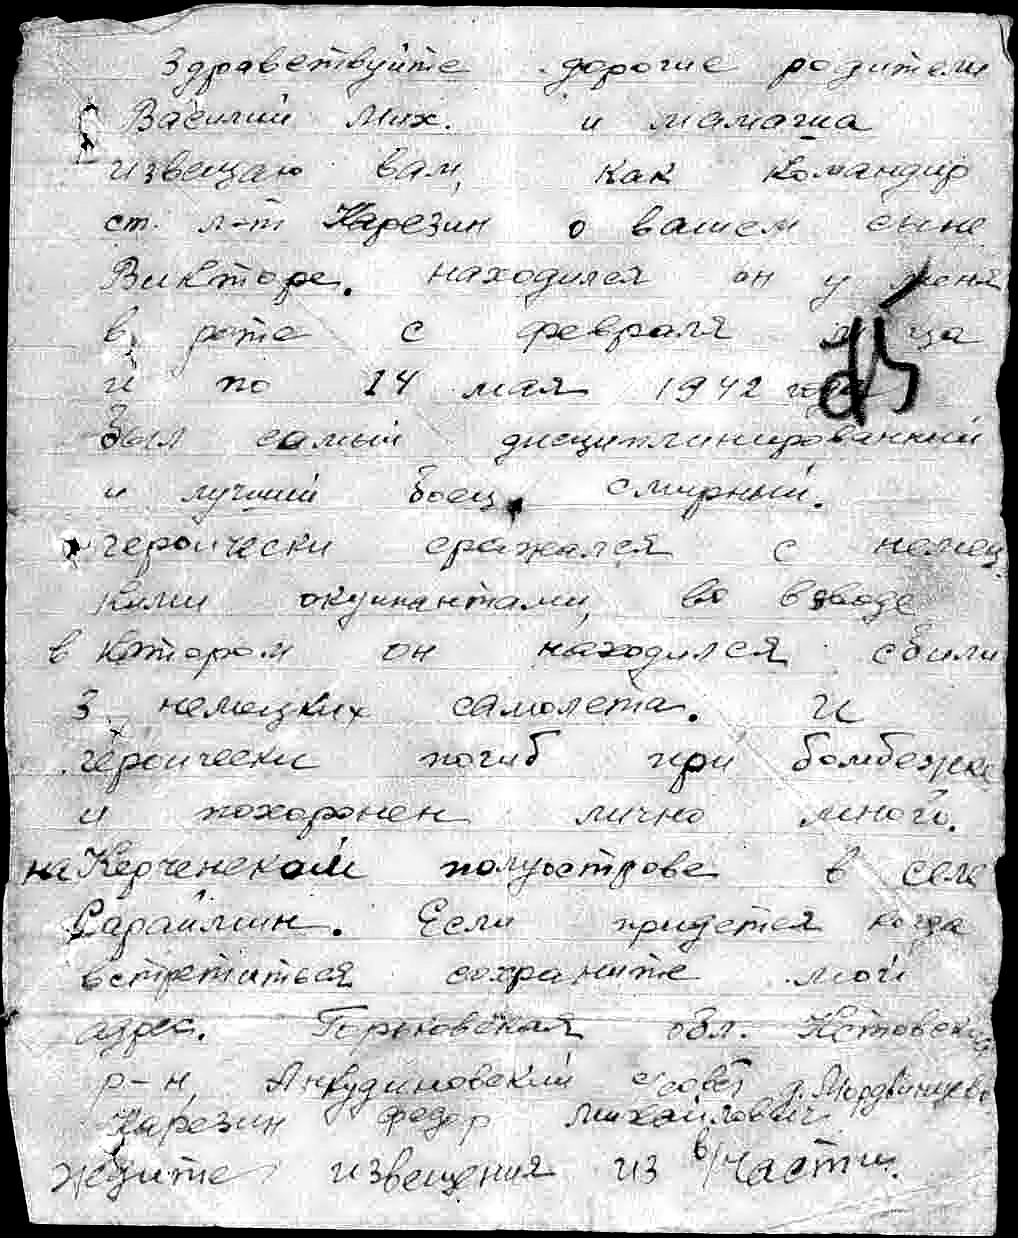 Здравствуйте дорогие родители
Василий Мих. и мамаша
извещаю вам, как командир
ст. л-т Карезин о вашем сыне
Викторе. находился он у меня
в роте с февраля м-ца
и по 14 мая 1942 года
был самый дисциплинированный
и лучший боец, смирный.
героически сражался с немец
кими окупантами, во взводе
в котором он находился сбили
3 немецких самолета. И
героически погиб при бомбежке
и похоронен лично мной.
на Керченском полуострове в селе
Сараймин. Если придется когда
встретиться сохраните мой
адрес. Горьковская обл. Кстовский
р-н, Анкудиновский с/совет д. Мордвинцево
Карезин Федор Михайлович
Ждите извещения из в/части.